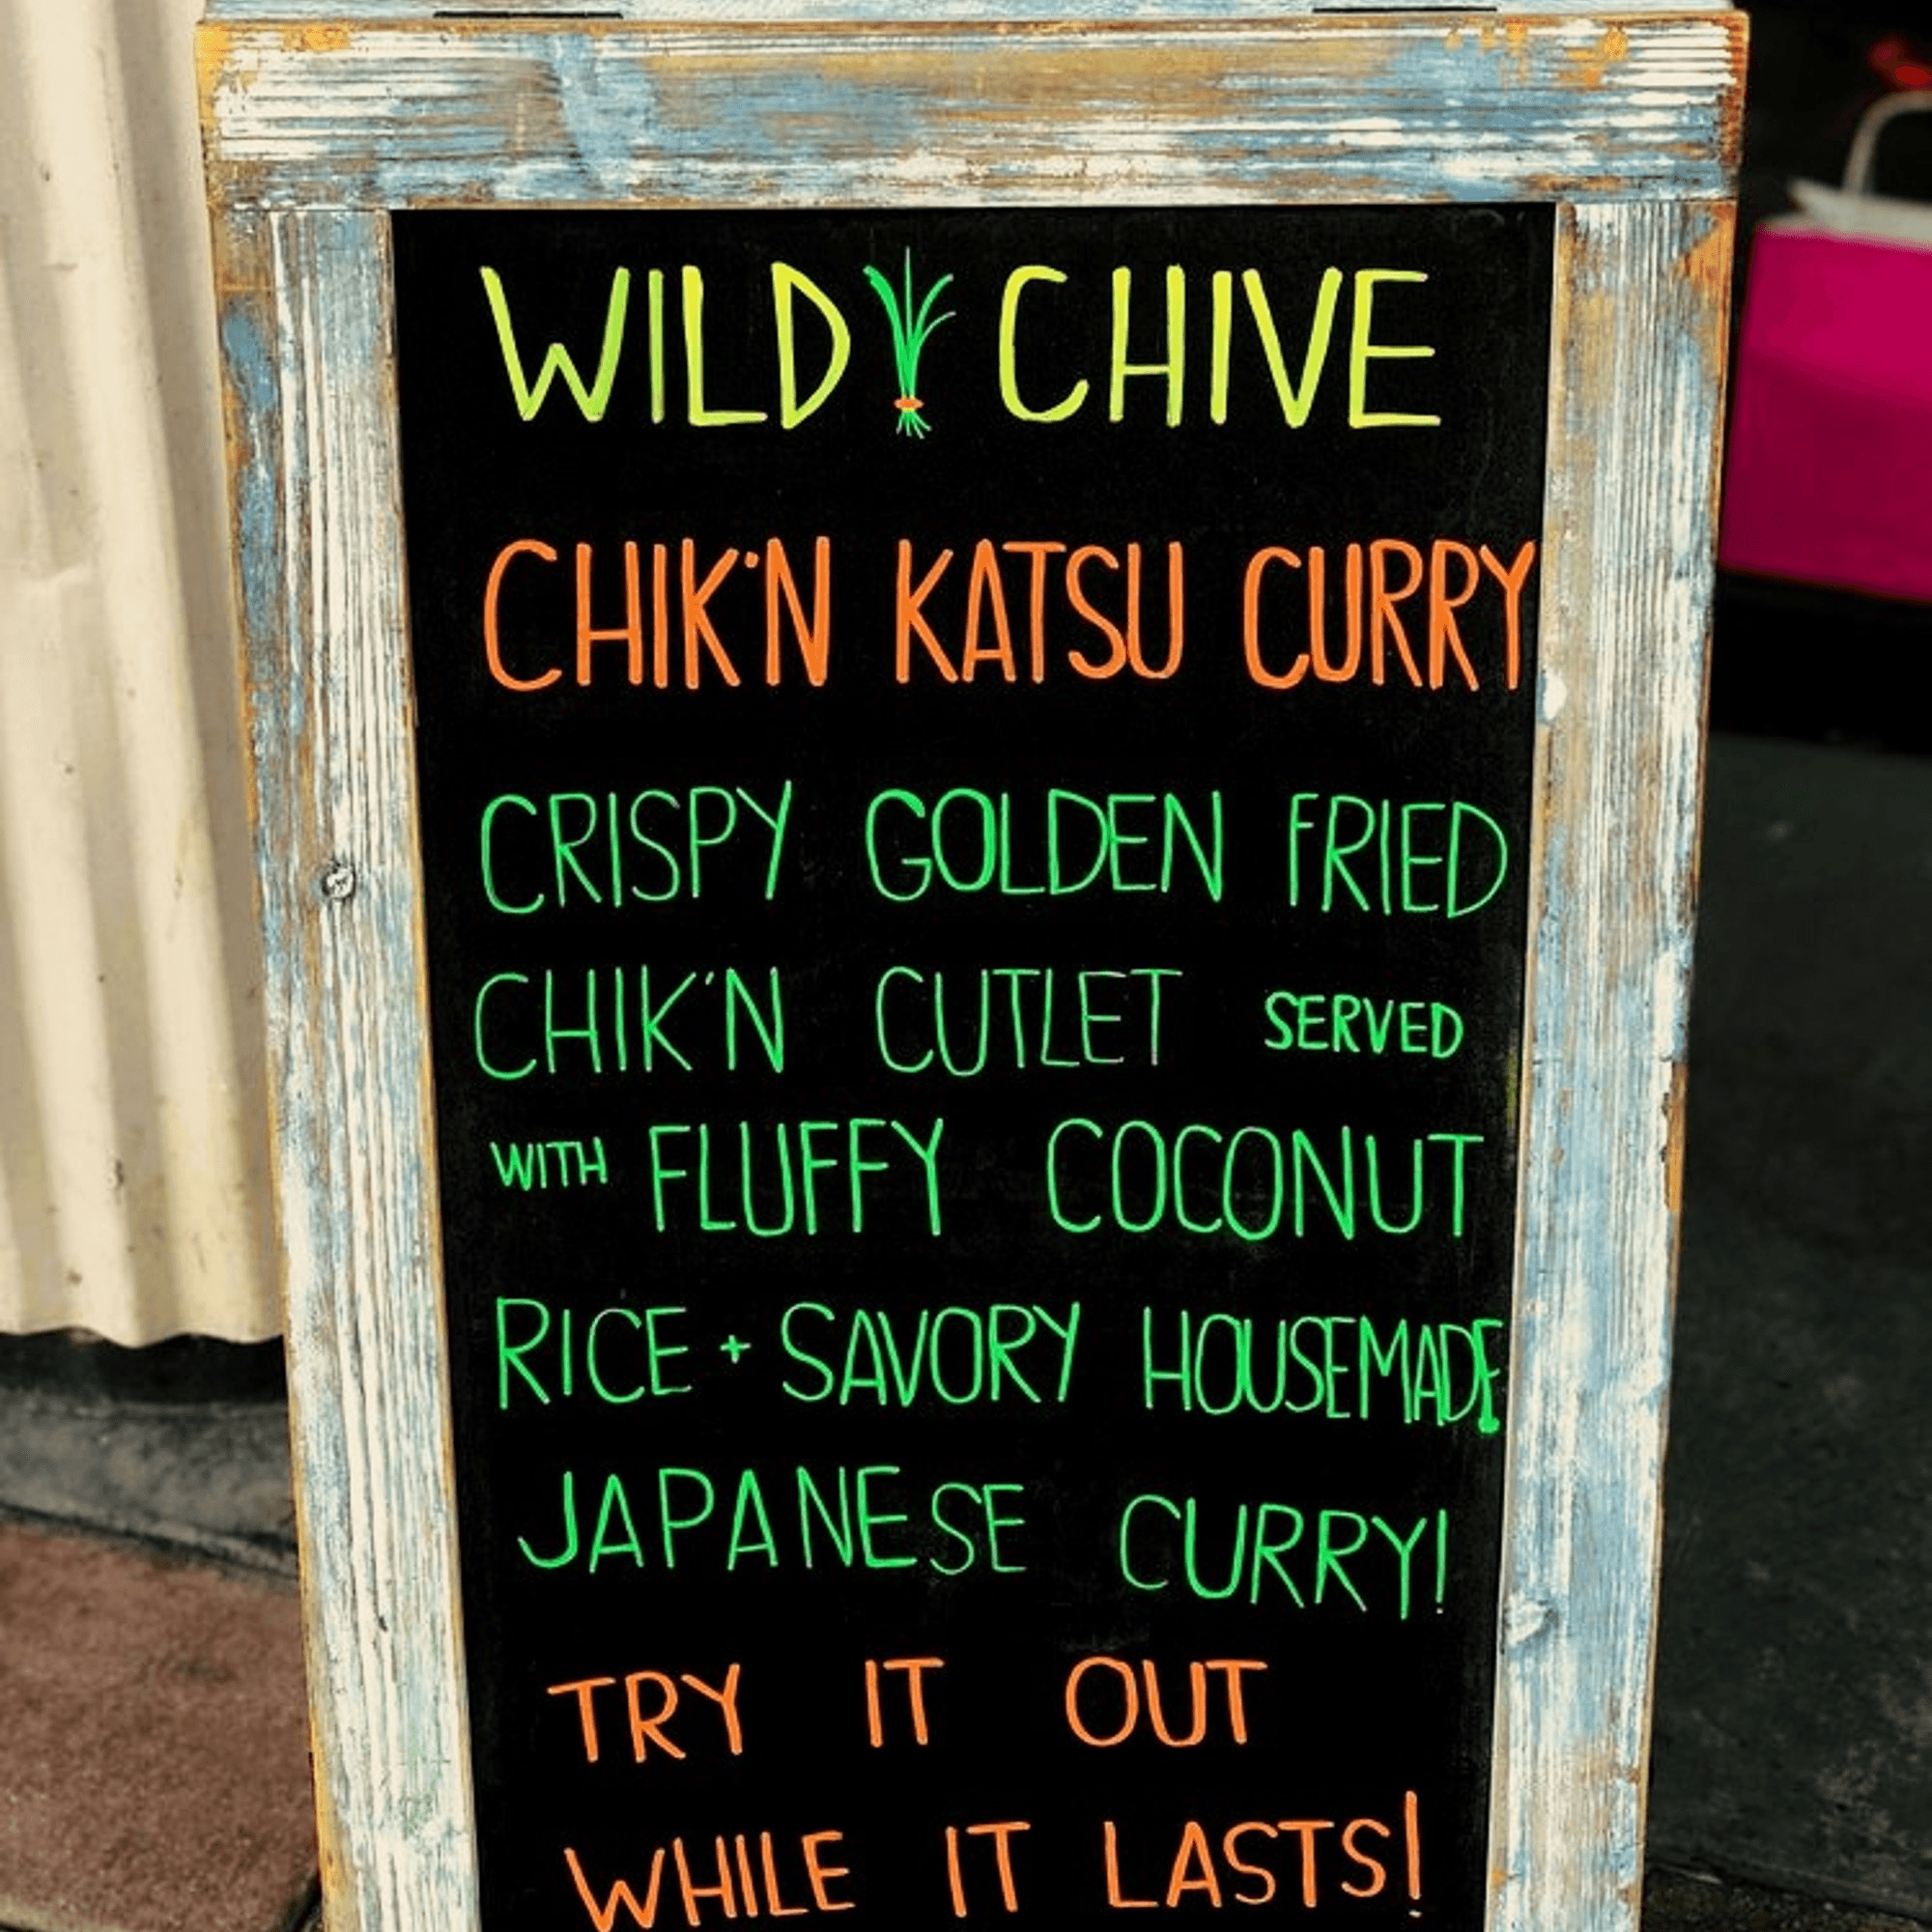 WILD CHIVE
CHIK'N KATSU CURRY
CRISPY GOLDEN FRIED
CHIK'N CUTLET SERVED
WITH FLUFFY COCONUT
RICE + SAVORY HOUSEMADE
JAPANESE CURRY!
TRY IT OUT
WHILE IT LASTS!